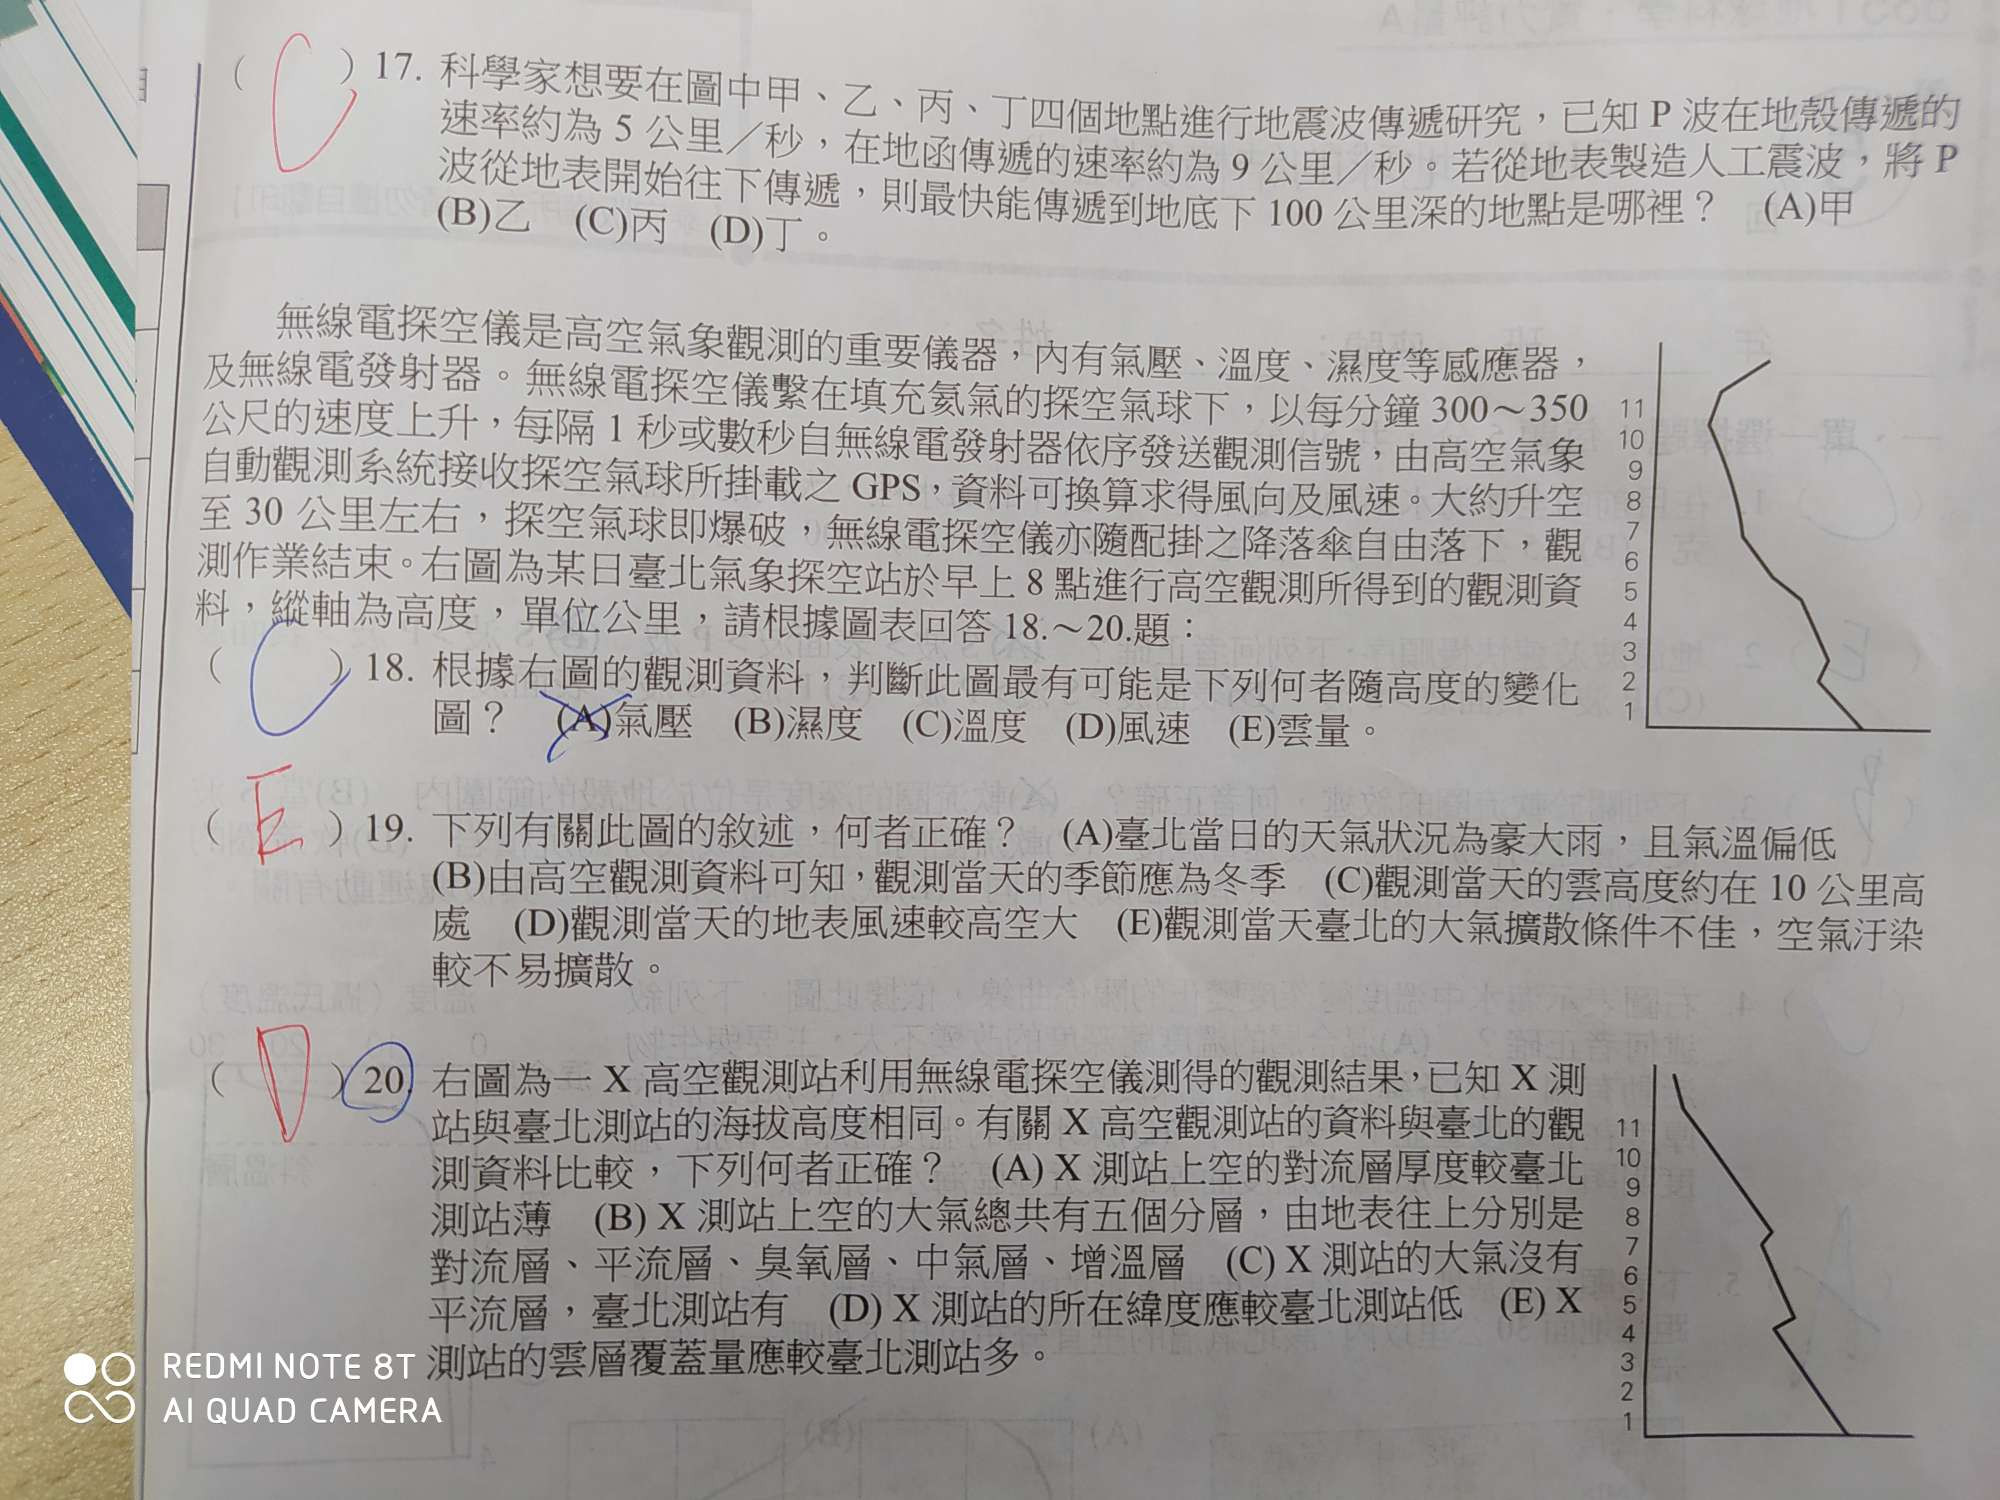 ( C ) 17. 科學家想要在圖中甲、乙、丙、丁四個地點進行地震波傳遞研究，已知 P 波在地殼傳遞的
速率約為 5 公里／秒，在地函傳遞的速率約為 9 公里／秒。若從地表製造人工震波，將 P
波從地表開始往下傳遞，則最快能傳遞到地底下 100 公里深的地點是哪裡？ (A)甲
(B)乙 (C)丙 (D)丁。
無線電探空儀是高空氣象觀測的重要儀器，內有氣壓、溫度、濕度等感應器，
及無線電發射器。無線電探空儀繫在填充氦氣的探空氣球下，以每分鐘 300～350
公尺的速度上升，每隔 1 秒或數秒自無線電發射器依序發送觀測信號，由高空氣象
自動觀測系統接收探空氣球所掛載之 GPS，資料可換算求得風向及風速。大約升空
至 30 公里左右，探空氣球即爆破，無線電探空儀亦隨配掛之降落傘自由落下，觀
測作業結束。右圖為某日臺北氣象探空站於早上 8 點進行高空觀測所得到的觀測資
料，縱軸為高度，單位公里，請根據圖表回答 18.～20.題：
11
10
9
8
7
6
5
4
3
2
1
( C ) 18. 根據右圖的觀測資料，判斷此圖最有可能是下列何者隨高度的變化
圖？ (A)氣壓 (B)濕度 (C)溫度 (D)風速 (E)雲量。
( E ) 19. 下列有關此圖的敘述，何者正確？ (A)臺北當日的天氣狀況為豪大雨，且氣溫偏低
(B)由高空觀測資料可知，觀測當天的季節應為冬季 (C)觀測當天的雲高度約在 10 公里高
處 (D)觀測當天的地表風速較高空大 (E)觀測當天臺北的大氣擴散條件不佳，空氣汙染
較不易擴散。
( D ) 20. 右圖為一 X 高空觀測站利用無線電探空儀測得的觀測結果，已知 X 測
站與臺北測站的海拔高度相同。有關 X 高空觀測站的資料與臺北的觀
測資料比較，下列何者正確？ (A) X 測站上空的對流層厚度較臺北
測站薄 (B) X 測站上空的大氣總共有五個分層，由地表往上分別是
對流層、平流層、臭氧層、中氣層、增溫層 (C) X 測站的大氣沒有
平流層，臺北測站有 (D) X 測站的所在緯度應較臺北測站低 (E) X
測站的雲層覆蓋量應較臺北測站多。
11
10
9
8
7
6
5
4
3
2
1
REDMI NOTE 8T
AI QUAD CAMERA